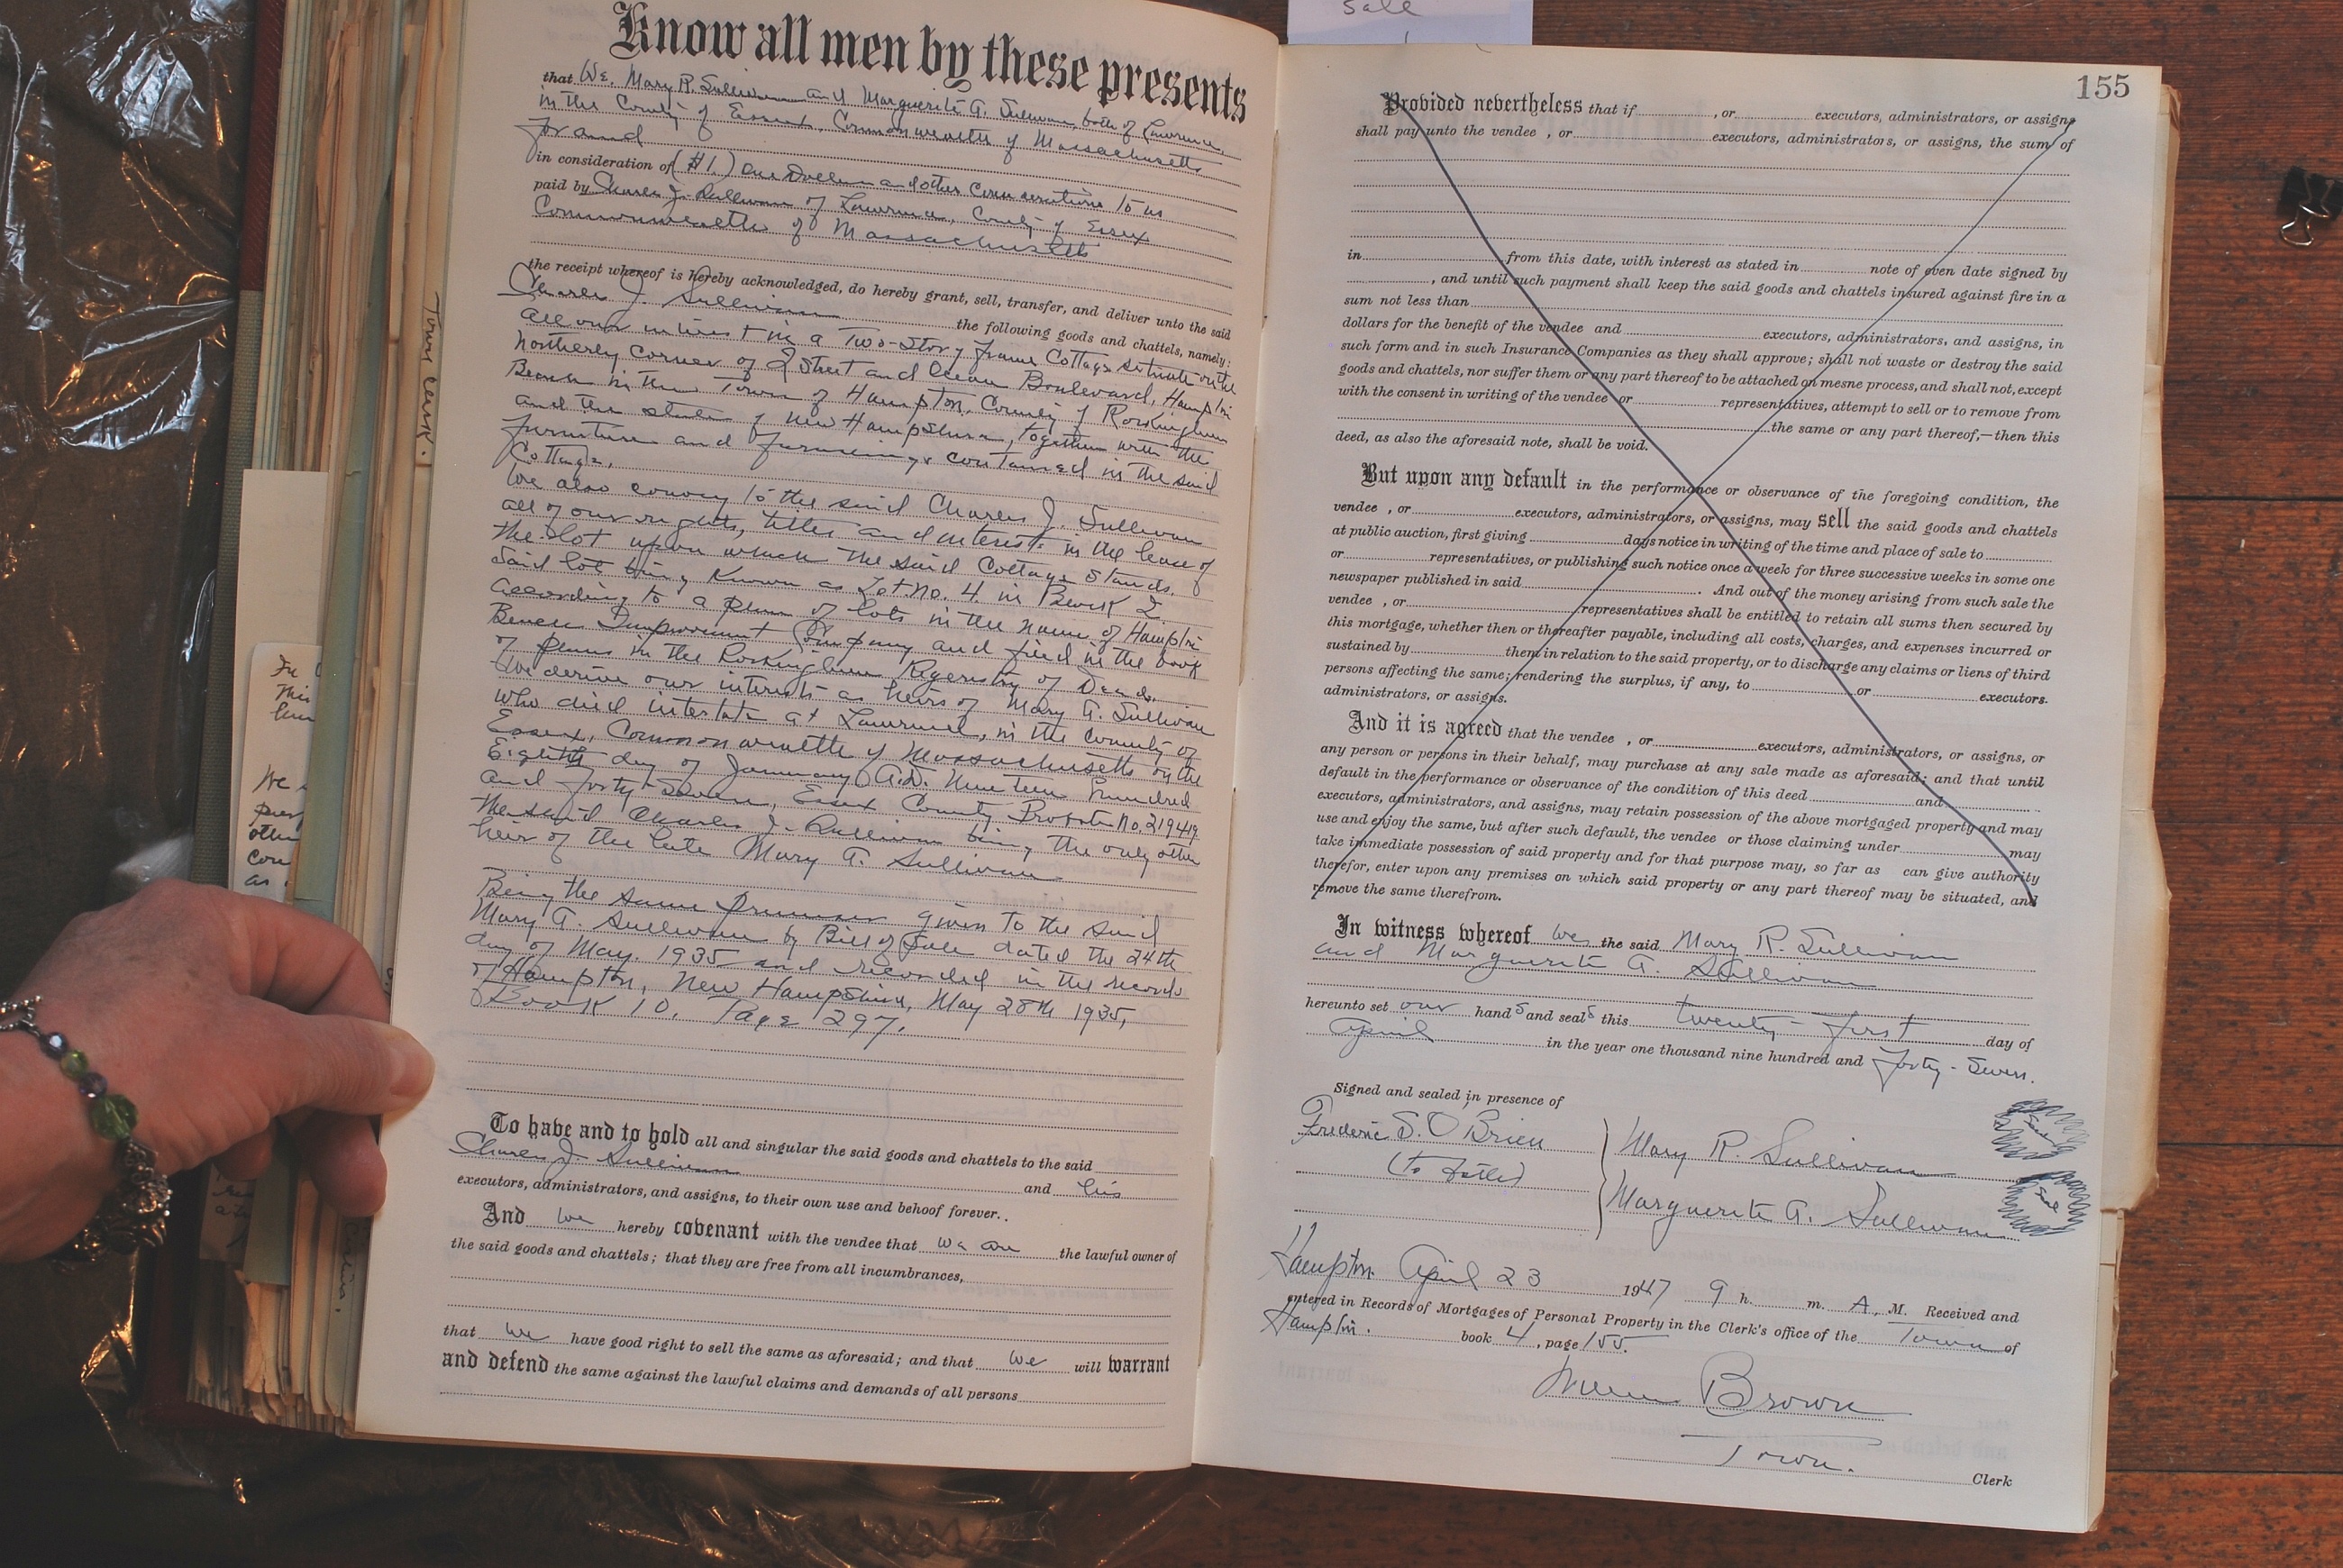 Know all men by these presents
that We, Mary R. Sullivan and Marguerite A. Sullivan, both of Lawrence,
in the County of Essex, Commonwealth of Massachusetts
for and
in consideration of ($1.) One Dollar and other considerations to us
paid by Charles J. Sullivan of Lawrence, County of Essex
Commonwealth of Massachusetts
the receipt whereof is hereby acknowledged, do hereby grant, sell, transfer, and deliver unto the said
Charles J. Sullivan the following goods and chattels, namely:
All our interest in a Two-Story frame Cottage situate on the
Northerly corner of I Street and Ocean Boulevard, Hampton
Beach in the Town of Hampton, County of Rockingham
and the state of New Hampshire, together with the
furniture and furnishings contained in the said
Cottage.
We also convey to the said Charles J. Sullivan
all of our rights, titles and interests in the lease of
the lot upon which the said Cottage stands.
Said lot being known as Lot No. 4 in Block 2
according to a plan of lots in the name of Hampton
Beach Improvement Company and filed in the book
of plans in the Rockingham Regestry of Deeds.
We derive our interests as heirs of Mary A. Sullivan
who died intestate at Lawrence, in the County of
Essex, Commonwealth of Massachusetts on the
Eighth day of January A.D. Nineteen hundred
and forty-seven, Essex County Probate No. 219419
the said Charles J. Sullivan being the only other
heir of the late Mary A. Sullivan
Being the same premises given to the said
Mary A. Sullivan by Bill of Sale dated the 24th
day of May. 1935 and recorded in the records
of Hampton, New Hampshire, May 28th 1935,
Book 10. Page 297.
To have and to hold all and singular the said goods and chattels to the said
Charles J. Sullivan and his
executors, administrators, and assigns, to their own use and behoof forever..
And we hereby covenant with the vendee that we are the lawful owner of
the said goods and chattels; that they are free from all incumbrances,
that we have good right to sell the same as aforesaid; and that we will warrant
and defend the same against the lawful claims and demands of all persons
Town Clerk.
Sale
155
Provided nevertheless that if , or executors, administrators, or assigns
shall pay unto the vendee , or executors, administrators, or assigns, the sum of
in from this date, with interest as stated in note of even date signed by
, and until such payment shall keep the said goods and chattels insured against fire in a
sum not less than
dollars for the benefit of the vendee and executors, administrators, and assigns, in
such form and in such Insurance Companies as they shall approve; shall not waste or destroy the said
goods and chattels, nor suffer them or any part thereof to be attached on mesne process, and shall not, except
with the consent in writing of the vendee or representatives, attempt to sell or to remove from
the same or any part thereof,—then this
deed, as also the aforesaid note, shall be void.
But upon any default in the performance or observance of the foregoing condition, the
vendee , or executors, administrators, or assigns, may sell the said goods and chattels
at public auction, first giving days notice in writing of the time and place of sale to
or representatives, or publishing such notice once a week for three successive weeks in some one
newspaper published in said . And out of the money arising from such sale the
vendee , or representatives shall be entitled to retain all sums then secured by
this mortgage, whether then or thereafter payable, including all costs, charges, and expenses incurred or
sustained by them in relation to the said property, or to discharge any claims or liens of third
persons affecting the same; rendering the surplus, if any, to or executors.
administrators, or assigns.
And it is agreed that the vendee , or executors, administrators, or assigns, or
any person or persons in their behalf, may purchase at any sale made as aforesaid; and that until
default in the performance or observance of the condition of this deed and
executors, administrators, and assigns, may retain possession of the above mortgaged property and may
use and enjoy the same, but after such default, the vendee or those claiming under may
take immediate possession of said property and for that purpose may, so far as can give authority
therefor, enter upon any premises on which said property or any part thereof may be situated, and
remove the same therefrom.
In witness whereof we the said Mary R. Sullivan
and Marguerite A. Sullivan
hereunto set our hands and seals this twenty-first day of
April in the year one thousand nine hundred and forty-seven.
Signed and sealed in presence of
Frederic S. O'Brien
Mary R. Sullivan
Marguerite A. Sullivan
Seal
Seal
Hampton April 23 1947 9 h. m. A. M. Received and
entered in Records of Mortgages of Personal Property in the Clerk's office of the Town of
Hampton. book 4, page 155.
Brown
Town. Clerk